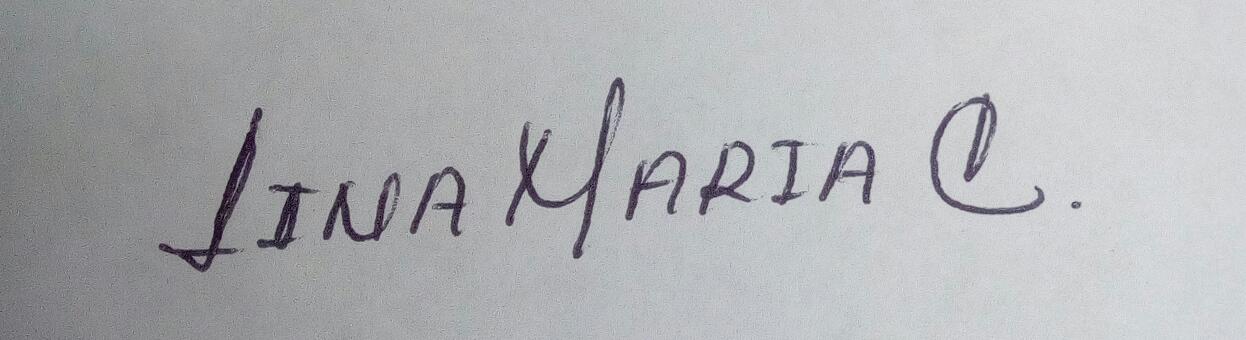 LINA MARIA C.